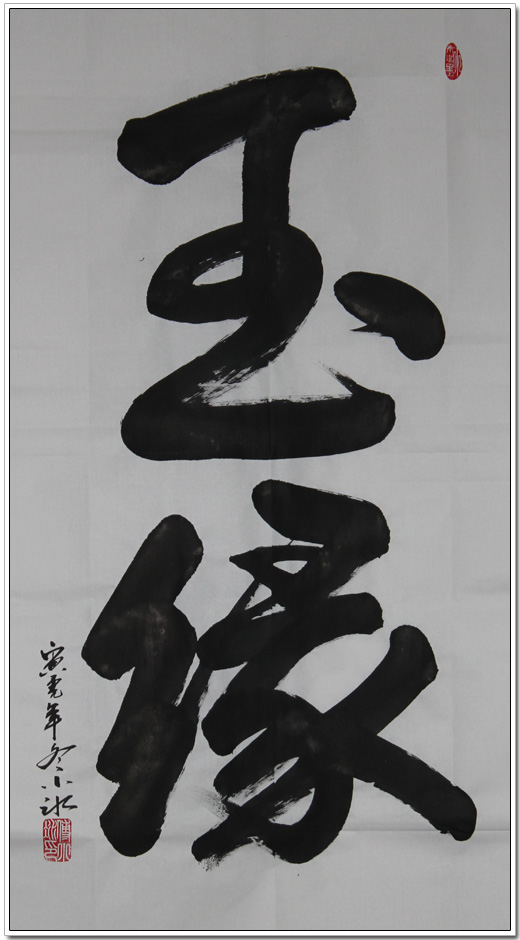 玉缘
寅虎年冬小冰